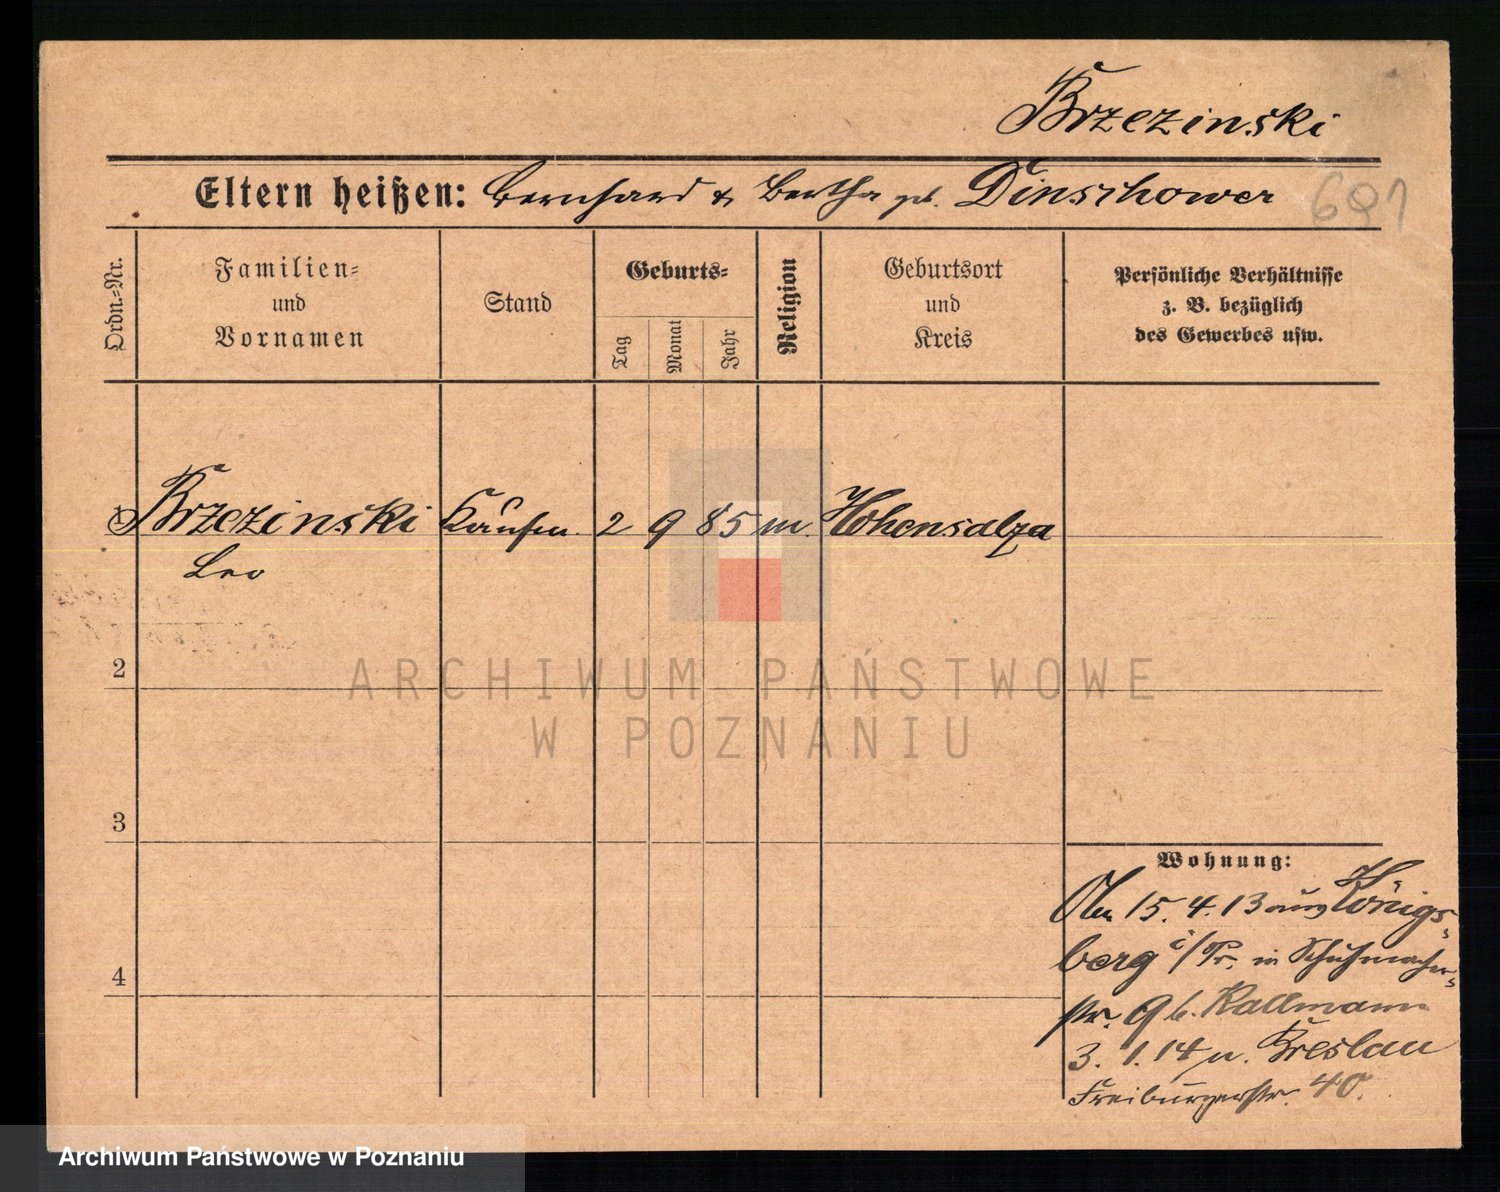 Brzezinski
Eltern heißen: Bernhard & Bertha geb. Dinschower
691
Ordn.=Nr.
Familien=
und
Vornamen
Stand
Geburts=
Tag
Monat
Jahr
Religion
Geburtsort
und
Kreis
Persönliche Verhältnisse
z. B. bezüglich
des Gewerbes usw.
1 Brzezinski Kaufm. 2 9 85 m. Hohensalza
Leo
2
ARCHIWUM PAŃSTWOWE
W POZNANIU
3
Wohnung:
15. 4. 13 aus Königs-
berg i/Pr. in Schuhmacher-
4
str. 9 b. Kallmann
3. 1. 14 n. Breslau
Freiburgerstr. 40.
Archiwum Państwowe w Poznaniu